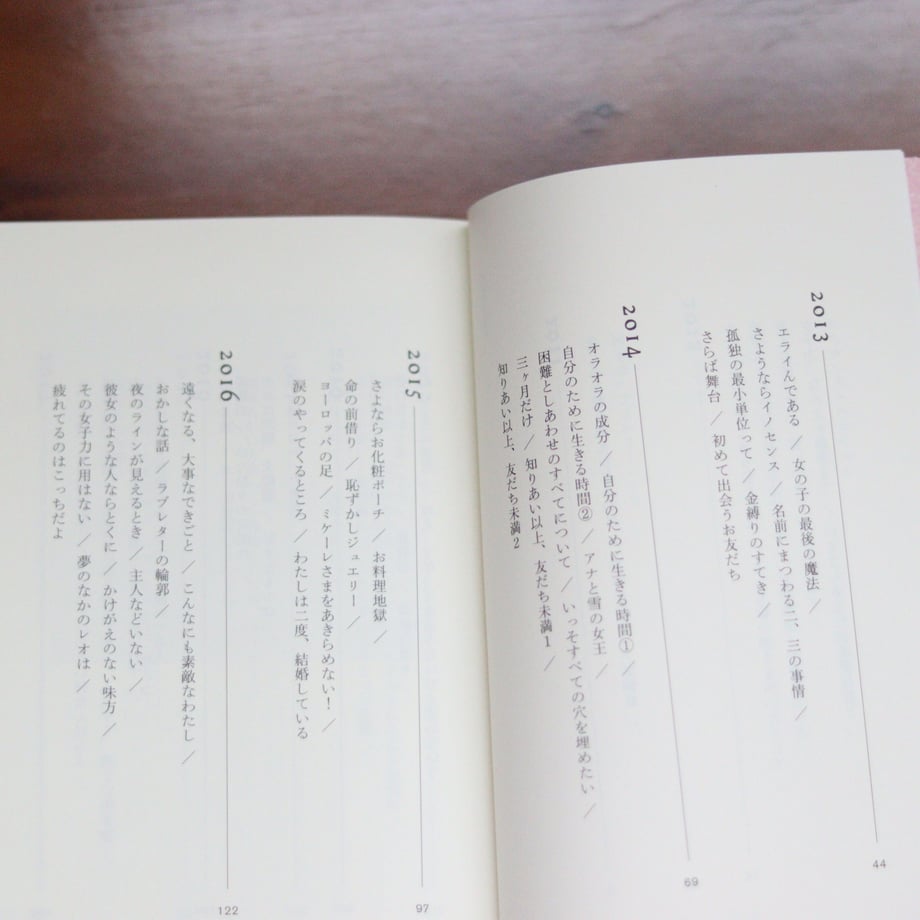 2013
44
エライんである ／ 女の子の最後の魔法 ／
さようならイノセンス ／ 名前にまつわる二、三の事情 ／
孤独の最小単位って ／ 金縛りのすてき ／
さらば舞台 ／ 初めて出会うお友だち
2014
69
オラオラの成分 ／ 自分のために生きる時間① ／
自分のために生きる時間② ／ アナと雪の女王 ／
困難としあわせのすべてについて ／ いっそすべての穴を埋めたい ／
三ヶ月だけ ／ 知りあい以上、友だち未満1 ／
知りあい以上、友だち未満2
2015
97
さよならお化粧ポーチ ／ お料理地獄 ／
命の前借り ／ 恥ずかしジュエリー ／
ヨーロッパの足 ／ ミケーレさまをあきらめない! ／
涙のやってくるところ ／ わたしは二度、結婚している
2016
122
遠くなる、大事なできごと ／ こんなにも素敵なわたし ／
おかしな話 ／ ラブレターの輪郭 ／
夜のラインが見えるとき ／ 主人などいない ／
彼女のような人ならとくに ／ かけがえのない味方 ／
その女子力に用はない ／ 夢のなかのレオは ／
疲れてるのはこっちだよ